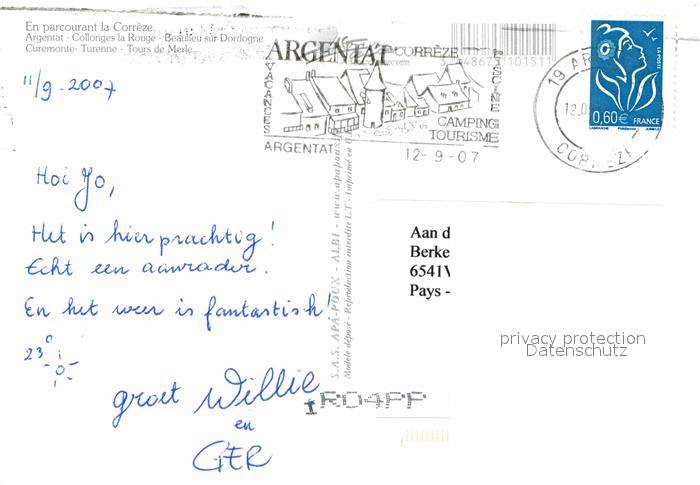 En parcourant la Corrèze
Argentat - Collonges la Rouge - Beaulieu sur Dordogne
Curemonte- Turenne - Tours de Merle
11/9-2007
Hoi Jo,
Het is hier prachtig!
Echt een aanrader.
En het weer is fantastisch!
23°
groet Willie
en
GER
ARGENTAT CORRÈZE
VACANCES
PISCINE
CAMPING
TOURISME
ARGENTAT
12-9-07
101511
19 AR
12.0
CORREZE
LA POSTE
0,60€ FRANCE
S.A.S. APA-POUX - ALBI - www.apapoux
Modèle déposé - Reproduction interdite LT - Imprimé en
Aan d
Berke
6541V
Pays -
privacy protection
Datenschutz
RD4PP